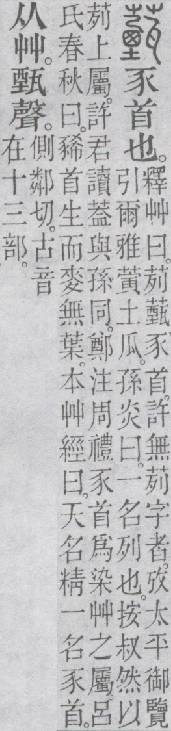 薽豕首也。
釋艸曰。茢薽豕首。許無茢字者。攷太平御覽
引爾雅黃土瓜。孫炎曰。一名列也。按叔然以
茢上屬。許君讀葢與孫同。鄭注周禮豕首爲染艸之屬。呂
氏春秋曰。豨首生而麥無葉。本艸經曰。天名精一名豕首。
从艸。甄聲。
側鄰切。古音
在十三部。